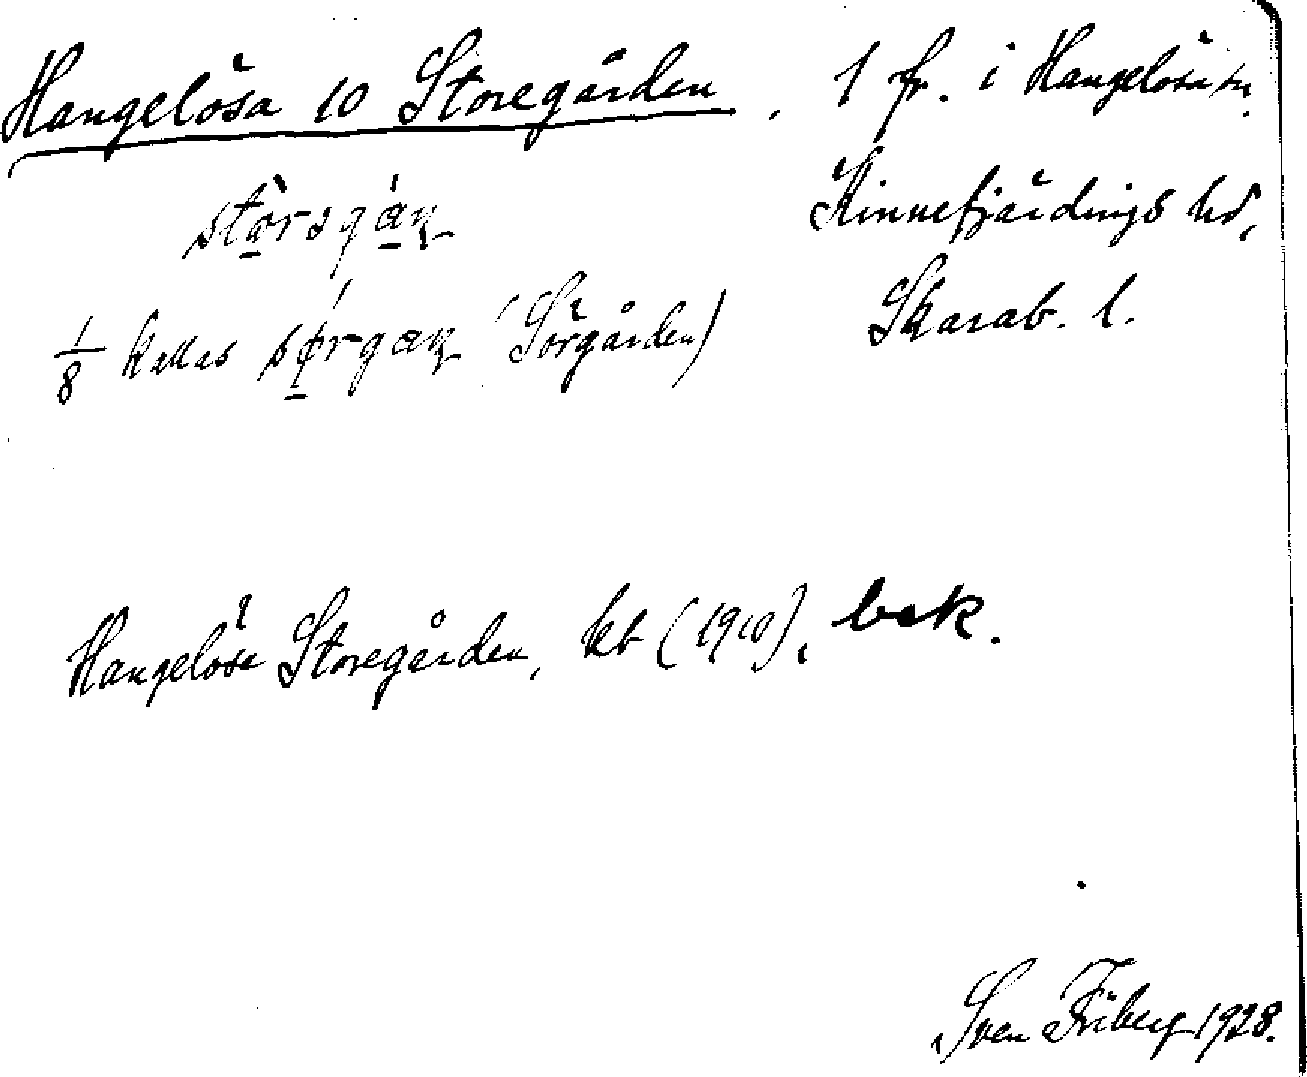 Hangelösa 10 Storegården, 1 fr. i Hangelösa sn.
Kinnefjärdings hd,
Skarab. l.
1/8 kallas (Sörgården)
Hangelösa Storegården, kb (1910), bek.
Sven Friberg 1928.